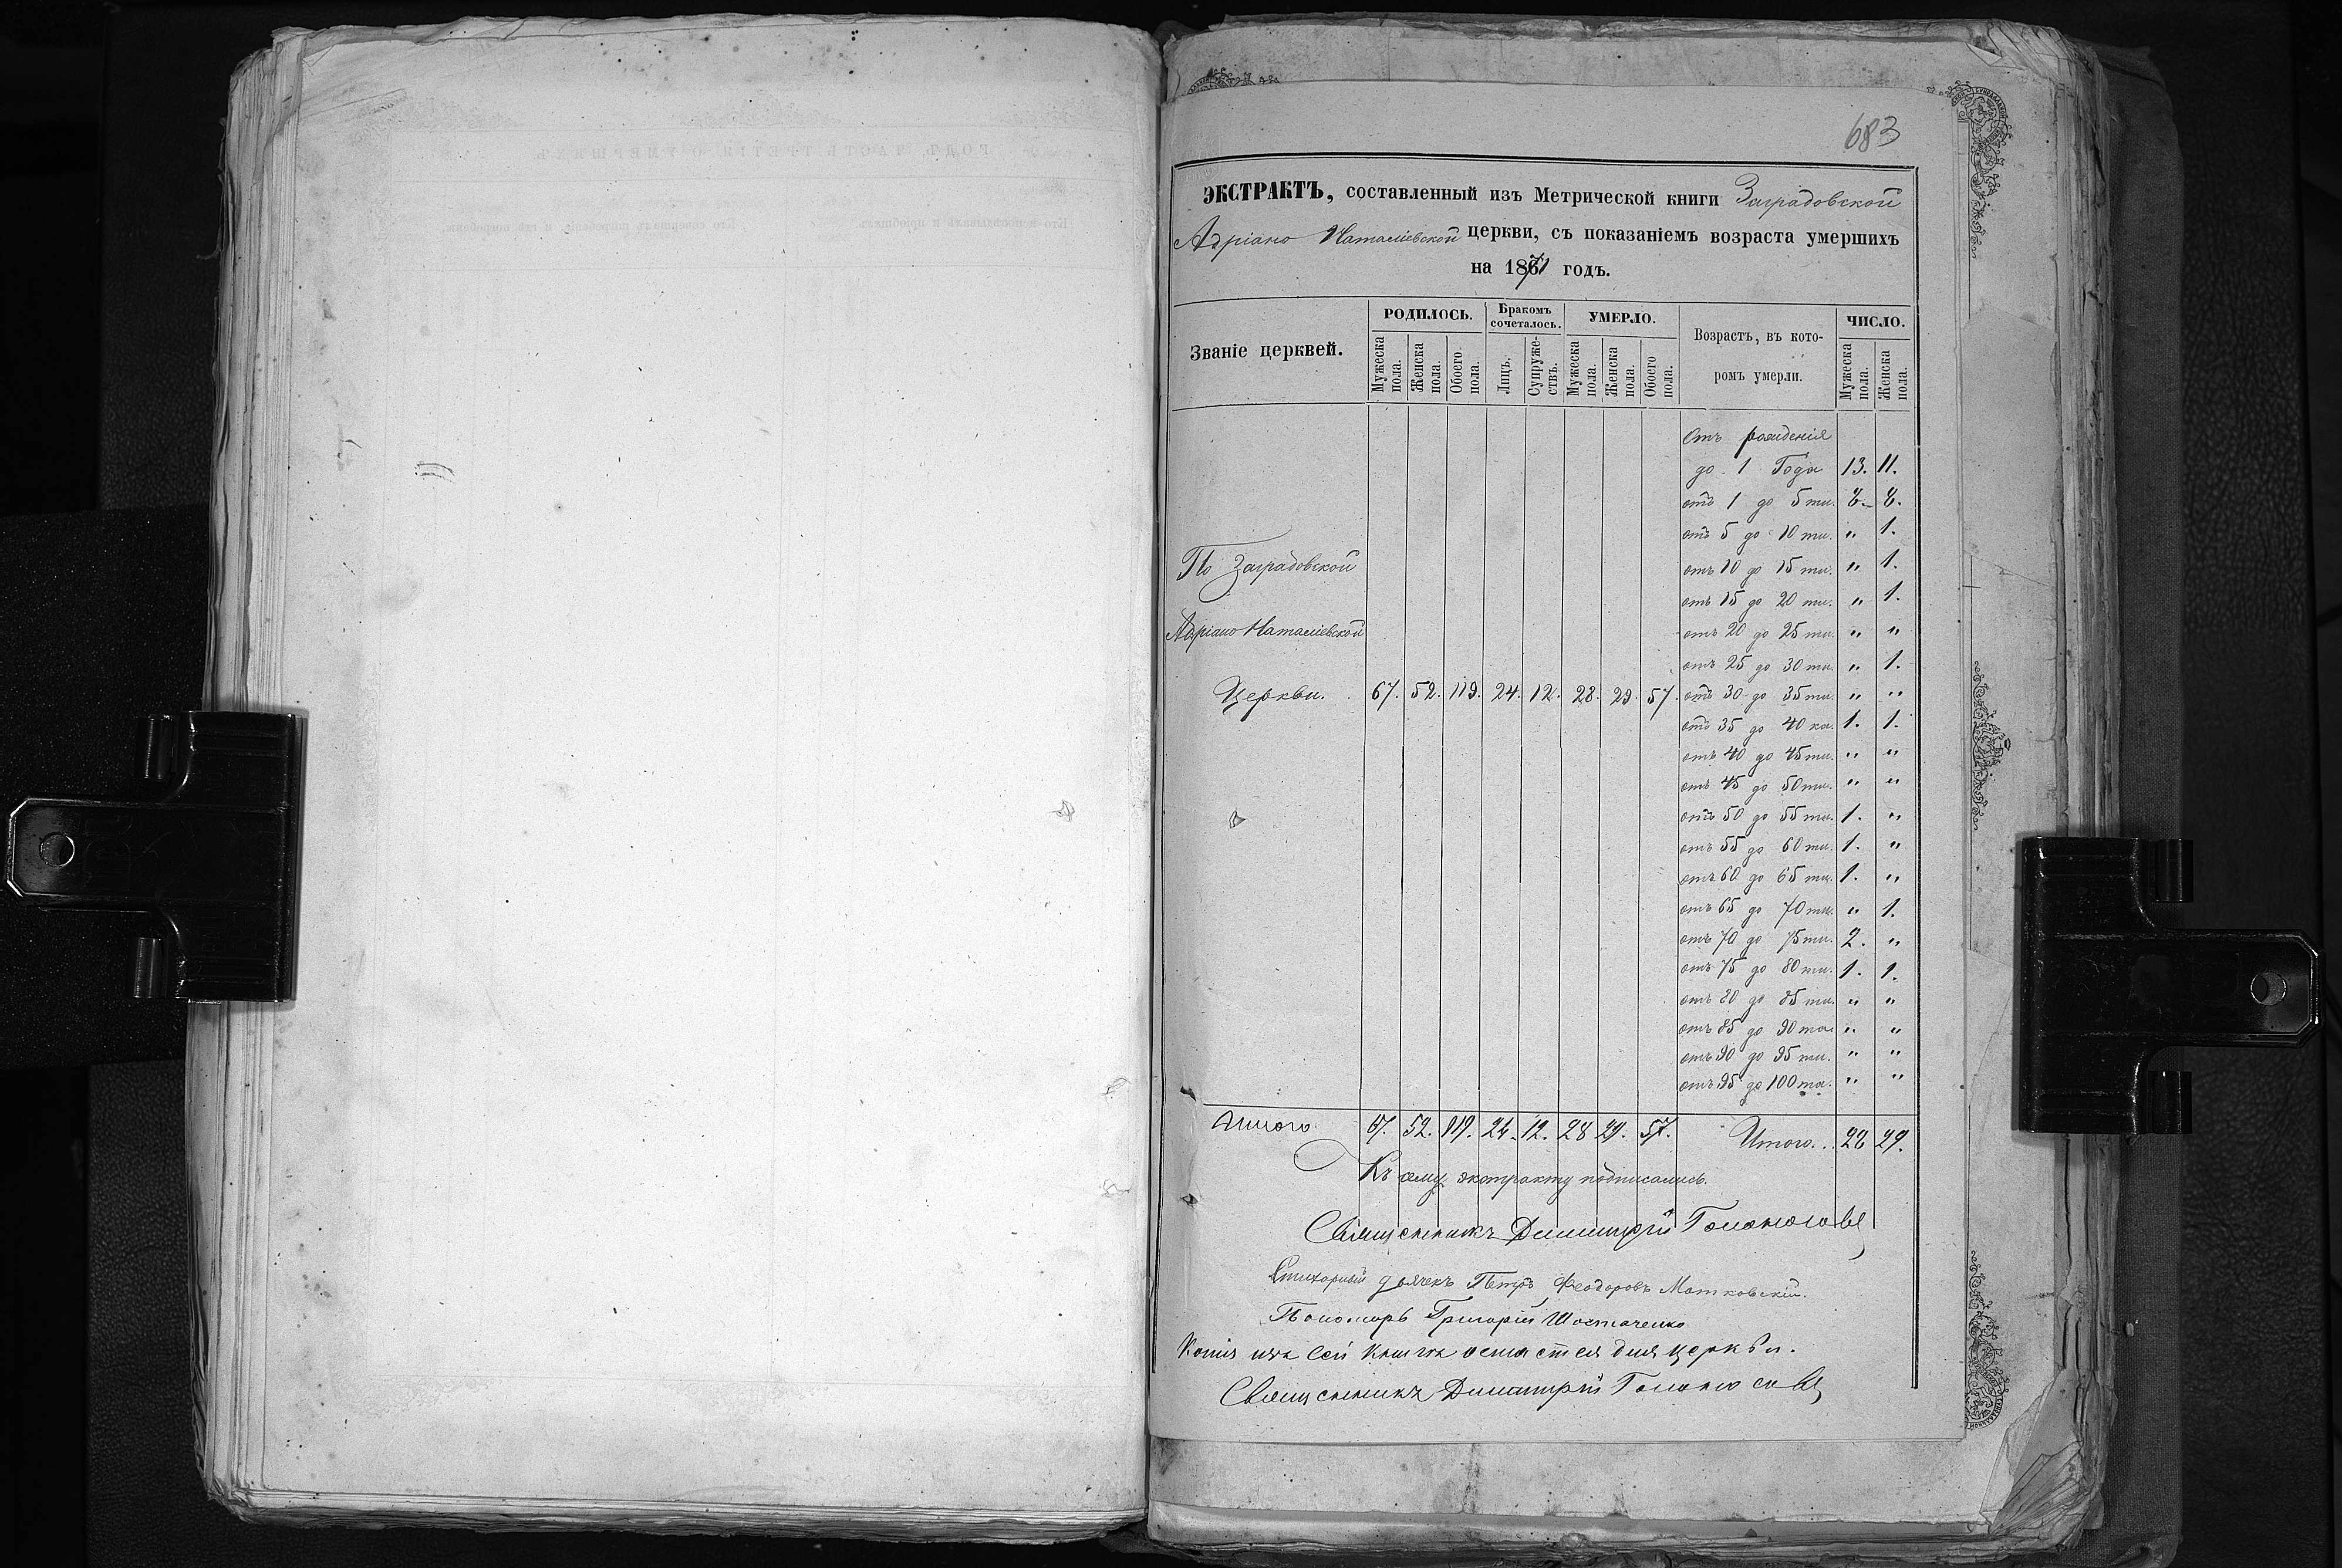 683
ЭКСТРАКТЪ, составленный изъ Метрической книги Заградовской
Адріано Наталіевской церкви, съ показаніемъ возраста умершихъ
на 1871 годъ.
Званіе церквей.
РОДИЛОСЬ.
Мужеска пола.
Женска пола.
Обоего пола.
Бракомъ сочеталось.
Лицъ.
Супружествъ.
УМЕРЛО.
Мужеска пола.
Женска пола.
Обоего пола.
Возрастъ, въ кото-
ромъ умерли.
ЧИСЛО.
Мужеска пола.
Женска пола.
Отъ рожденія
до 1 Года 13. 11.
отъ 1 до 5 ти. 8. 8.
отъ 5 до 10 ти. " 1.
По Заградовской отъ 10 до 15 ти. " 1.
отъ 15 до 20 ти. " 1.
Адріано Наталіевской отъ 20 до 25 ти. " "
отъ 25 до 30 ти. " 1.
Церкви. 67. 52. 119. 24. 12. 28. 29. 57. отъ 30 до 35 ти. " "
отъ 35 до 40 ка. 1. 1.
отъ 40 до 45 ти. " "
отъ 45 до 50 ти. " "
отъ 50 до 55 ти. 1. "
отъ 55 до 60 ти. 1. "
отъ 60 до 65 ти. 1. "
отъ 65 до 70 ти. " 1.
отъ 70 до 75 ти. 2. "
отъ 75 до 80 ти. 1. 1.
отъ 80 до 85 ти. " "
отъ 85 до 90 та. " "
отъ 90 до 95 ти. " "
отъ 95 до 100 та. " "
Итого 67. 52. 119. 24. 12. 28 29. 57. Итого.. 28 29.
Къ сему экстракту подписались.
Священникъ Димитрій
Стихарный дьячекъ Петръ Феодоровъ Матковскій.
Пономарь Григорій Шостаченко
Копія изъ сей книги остается для церкви.
Священникъ Димитрій